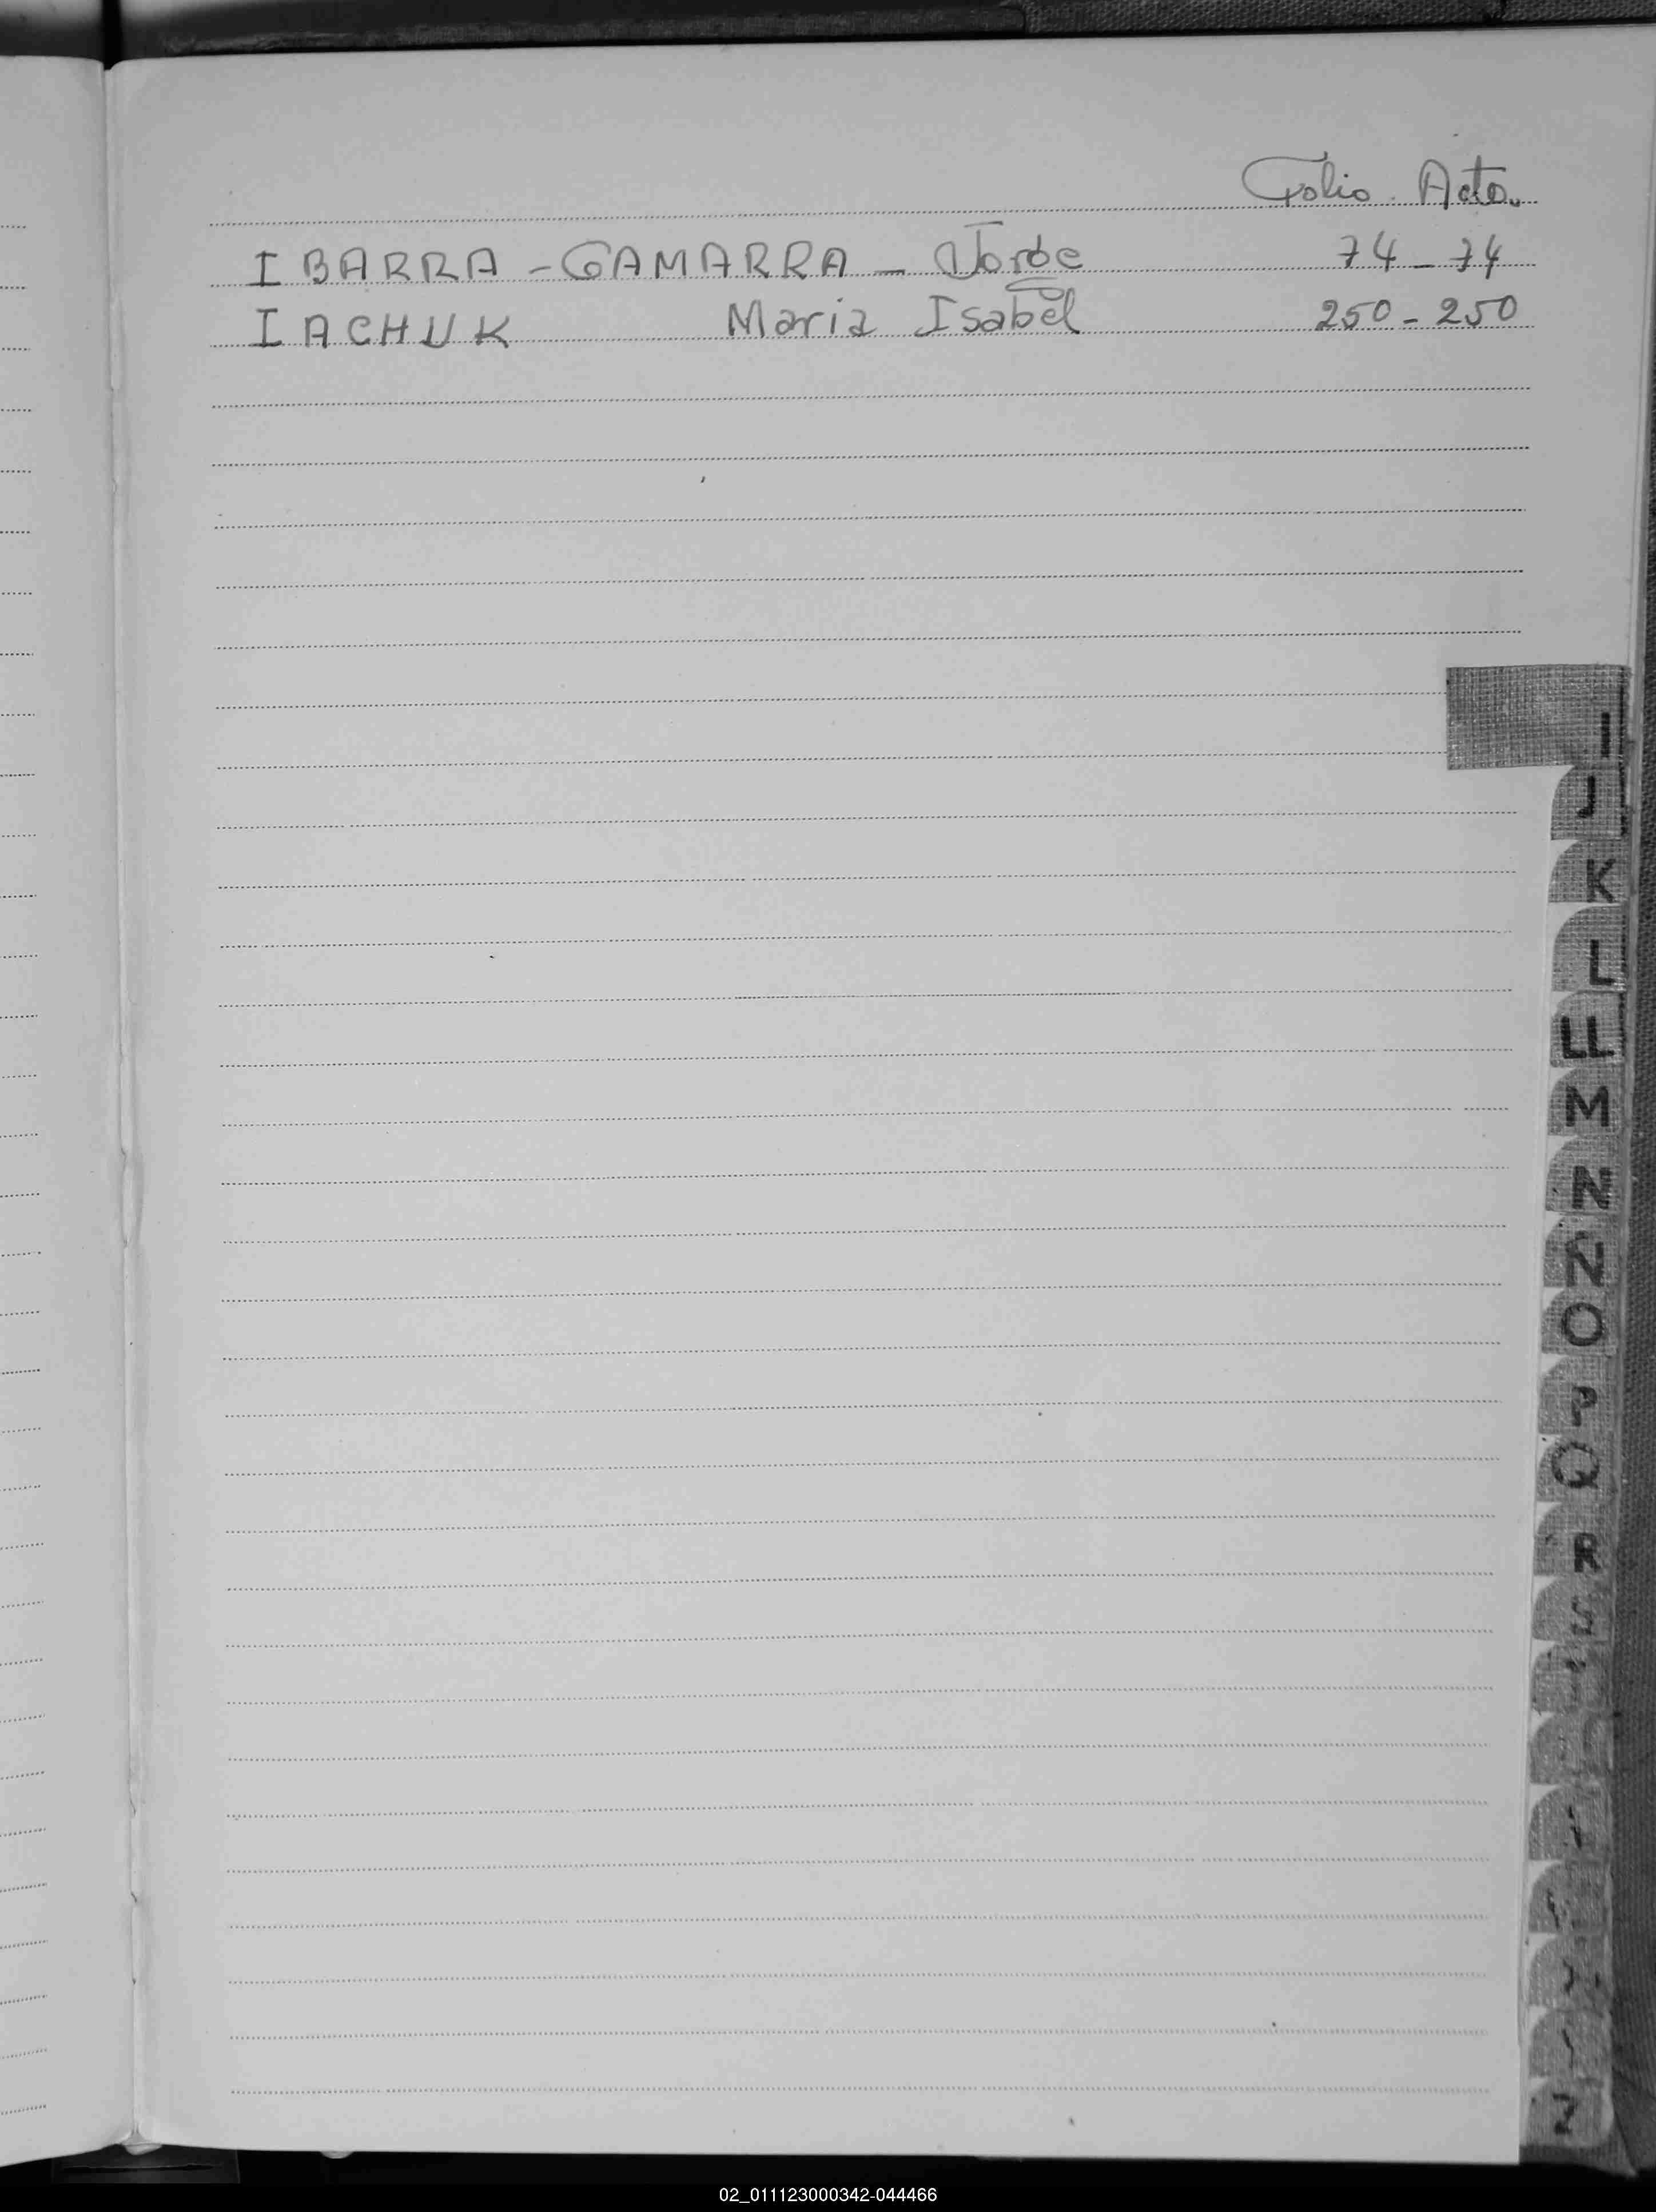 Folio Acta.
IBARRA - GAMARRA - Jorge 74 - 74
IACHUK Maria Isabel 250 - 250
I
J
K
L
LL
M
N
Ñ
O
P
Q
R
S
Z
02_011123000342-044466